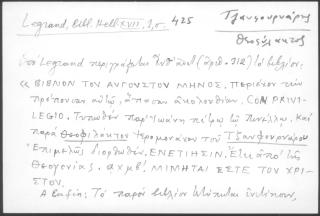 Legrand, Bibl. Hell. XVII, 1, σ. 425
Τζανφουρνάρης
Θεοφύλακτος
Ὁ Legrand περιγράφεται (ἀριθ. 312) τὸ βιβλίον:
« ΒΙΒΛΙΟΝ ΤΟΥ ΑΥΓΟΥΣΤΟΥ ΜΗΝΟΣ, Περιέχον τὴν
πρέπουσαν αὐτῷ, ἅπασαν ἀκολουθίαν. CON PRIVI-
LEGIO. Τυπωθὲν παρ' τῷ Πινέλλῳ. Καὶ
παρὰ Θεοφυλάκτου ἱερομονάχου τοῦ Τζανφουρνάρου
Ἐπιμελῶς διορθωθέν. ΕΝΕΤΙΗΣΙΝ. Ἔτει ἀπὸ τῆς
Θεογονίας. ΜΙΜΗΤΑΙ ΕΣΤΕ ΤΟΥ ΧΡΙ-
ΣΤΟΥ.
Τὸ παρὸν βιβλίον